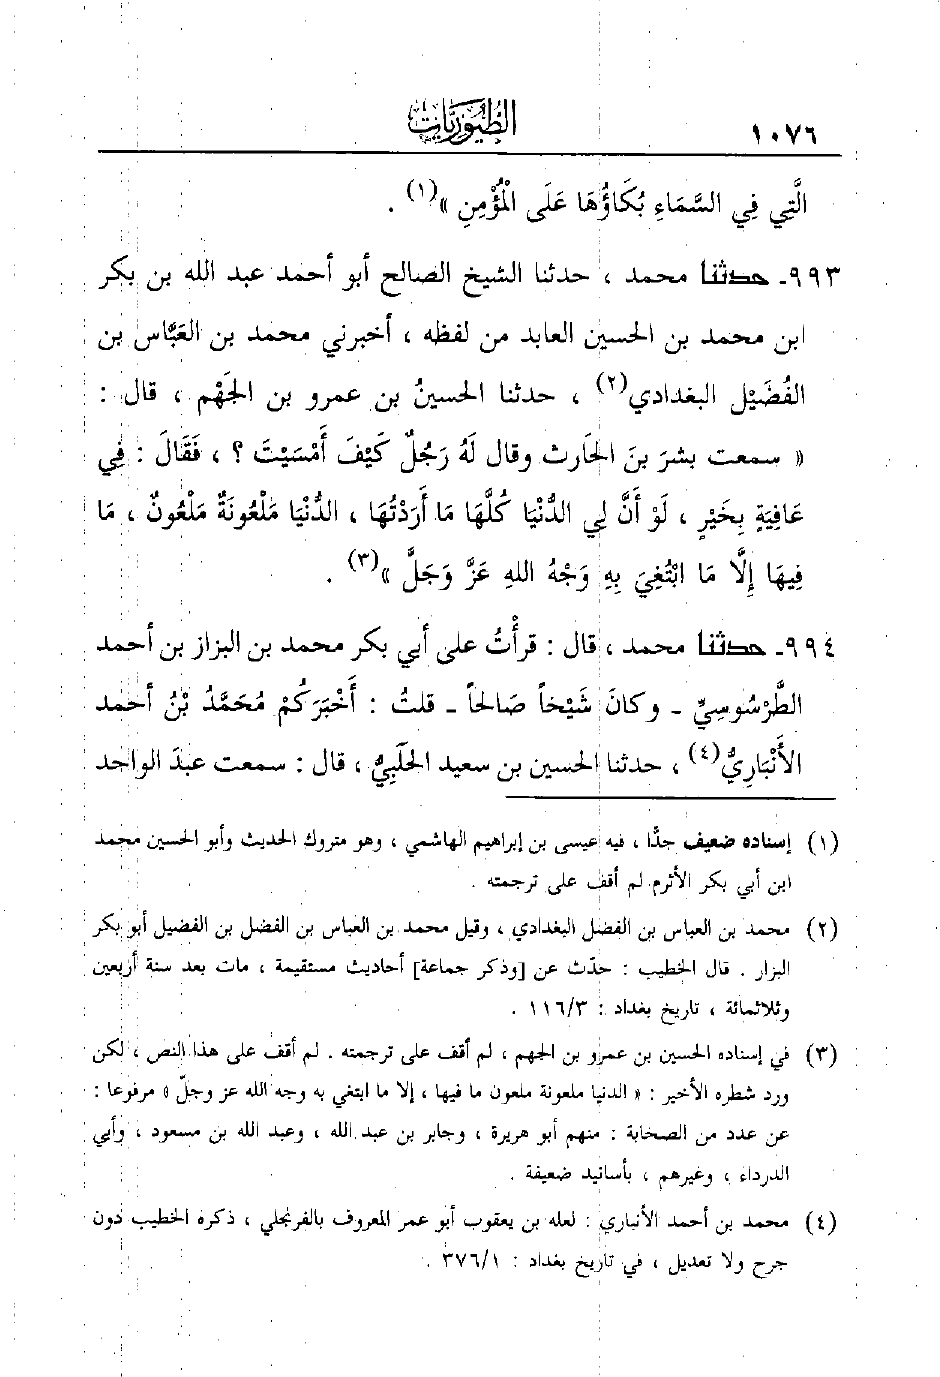 ١٠٧٦ الطيوريات
الَّتِي فِي السَّمَاءِ بُكَاؤُهَا عَلَى الْمُؤْمِنِ »(١) .
٩٩٣ـ حدثنا محمد ، حدثنا الشيخ الصالح أبو أحمد عبد الله بن بكر
ابن محمد بن الحسين العابد من لفظه ، أخبرني محمد بن العَبَّاس بن
الفُضَيْل البغدادي(٢) ، حدثنا الحسينُ بن عمرو بن الجَهْم ، قال :
« سمعت بشرَ بنَ الحَارث وقال لَهُ رَجُلٌ كَيْفَ أَمْسَيْتَ ؟ ، فَقَالَ : فِي
عَافِيَةٍ بِخَيْرٍ ، لَوْ أَنَّ لِي الدُّنْيَا كُلَّهَا مَا أَرَدْتُهَا ، الدُّنْيَا مَلْعُونَةٌ مَلْعُونٌ ، مَا
فِيهَا إِلَّا مَا ابْتُغِيَ بِهِ وَجْهُ اللهِ عَزَّ وَجَلَّ »(٣) .
٩٩٤ـ حدثنا محمد ، قال : قرأْتُ على أبي بكر محمد بن البزاز بن أحمد
الطَّرْسُوسِيِّ ـ وكانَ شَيْخاً صَالحاً ـ قلتُ : أَخْبَرَكُمْ مُحَمَّدُ بْنُ أحمد
الأَنْبَارِيُّ(٤) ، حدثنا الحسين بن سعيد الحَلَبِيُّ ، قال : سمعت عبدَ الواحد
(١) إسناده ضعيف جدًّا ، فيه عيسى بن إبراهيم الهاشمي ، وهو متروك الحديث وأبو الحسين محمد
ابن أبي بكر الأثرم لم أقف على ترجمته .
(٢) محمد بن العباس بن الفضل البغدادي ، وقيل محمد بن العباس بن الفضل بن الفضيل أبو بكر
البزار . قال الخطيب : حدّث عن [وذكر جماعة] أحاديث مستقيمة ، مات بعد سنة أربعين
وثلاثمائة ، تاريخ بغداد : ١١٦/٣ .
(٣) في إسناده الحسين بن عمرو بن الجهم ، لم أقف على ترجمته . لم أقف على هذا النص ، لكن
ورد شطره الأخير : « الدنيا ملعونة ملعون ما فيها ، إلا ما ابتغي به وجه الله عز وجلّ » مرفوعا :
عن عدد من الصحابة : منهم أبو هريرة ، وجابر بن عبد الله ، وعبد الله بن مسعود ، وأبي
الدرداء ، وغيرهم ، بأسانيد ضعيفة .
(٤) محمد بن أحمد الأنباري : لعله بن يعقوب أبو عمر المعروف بالفرنجلي ، ذكره الخطيب دون
جرح ولا تعديل ، في تاريخ بغداد : ٣٧٦/١ .